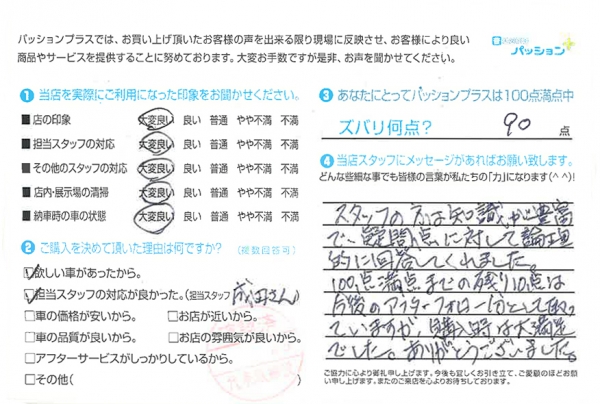 パッションプラスでは、お買い上げ頂いたお客様の声を出来る限り現場に反映させ、お客様により良い
商品やサービスを提供することに努めております。大変お手数ですが是非、お声を聞かせてください。
パッション
① 当店を実際にご利用になった印象をお聞かせください。
■ 店の印象 大変良い 良い 普通 やや不満 不満
■ 担当スタッフの対応 大変良い 良い 普通 やや不満 不満
■ その他のスタッフの対応 大変良い 良い 普通 やや不満 不満
■ 店内・展示場の清掃 大変良い 良い 普通 やや不満 不満
■ 納車時の車の状態 大変良い 良い 普通 やや不満 不満
② ご購入を決めて頂いた理由は何ですか? (複数回答可)
☑欲しい車があったから。
☑担当スタッフの対応が良かった。(担当スタッフ 成田さん
□車の価格が安いから。 □お店が近いから。
□車の品質が良いから。 □お店の雰囲気が良いから。
□アフターサービスがしっかりしているから。
□その他( )
③ あなたにとってパッションプラスは100点満点中
ズバリ何点? 90 点
④ 当店スタッフにメッセージがあればお願い致します。
どんな些細な事でも皆様の言葉が私たちの「力」になります(^ ^)!
スタッフの方は知識が豊富
で、疑問点に対して論理
的に回答してくれました。
100点満点までの残り10点は
今後のアフターフォロー分として取っ
ていますが、購入時は大満足
でした。ありがとうございました。
ご協力に心より御礼申し上げます。今後も宜しくお引き立て、ご愛顧のほどお願
い申し上げます。またのご来店を心よりお待ちしております。